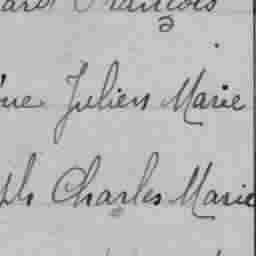 François
Julien Marie
Charles Marie